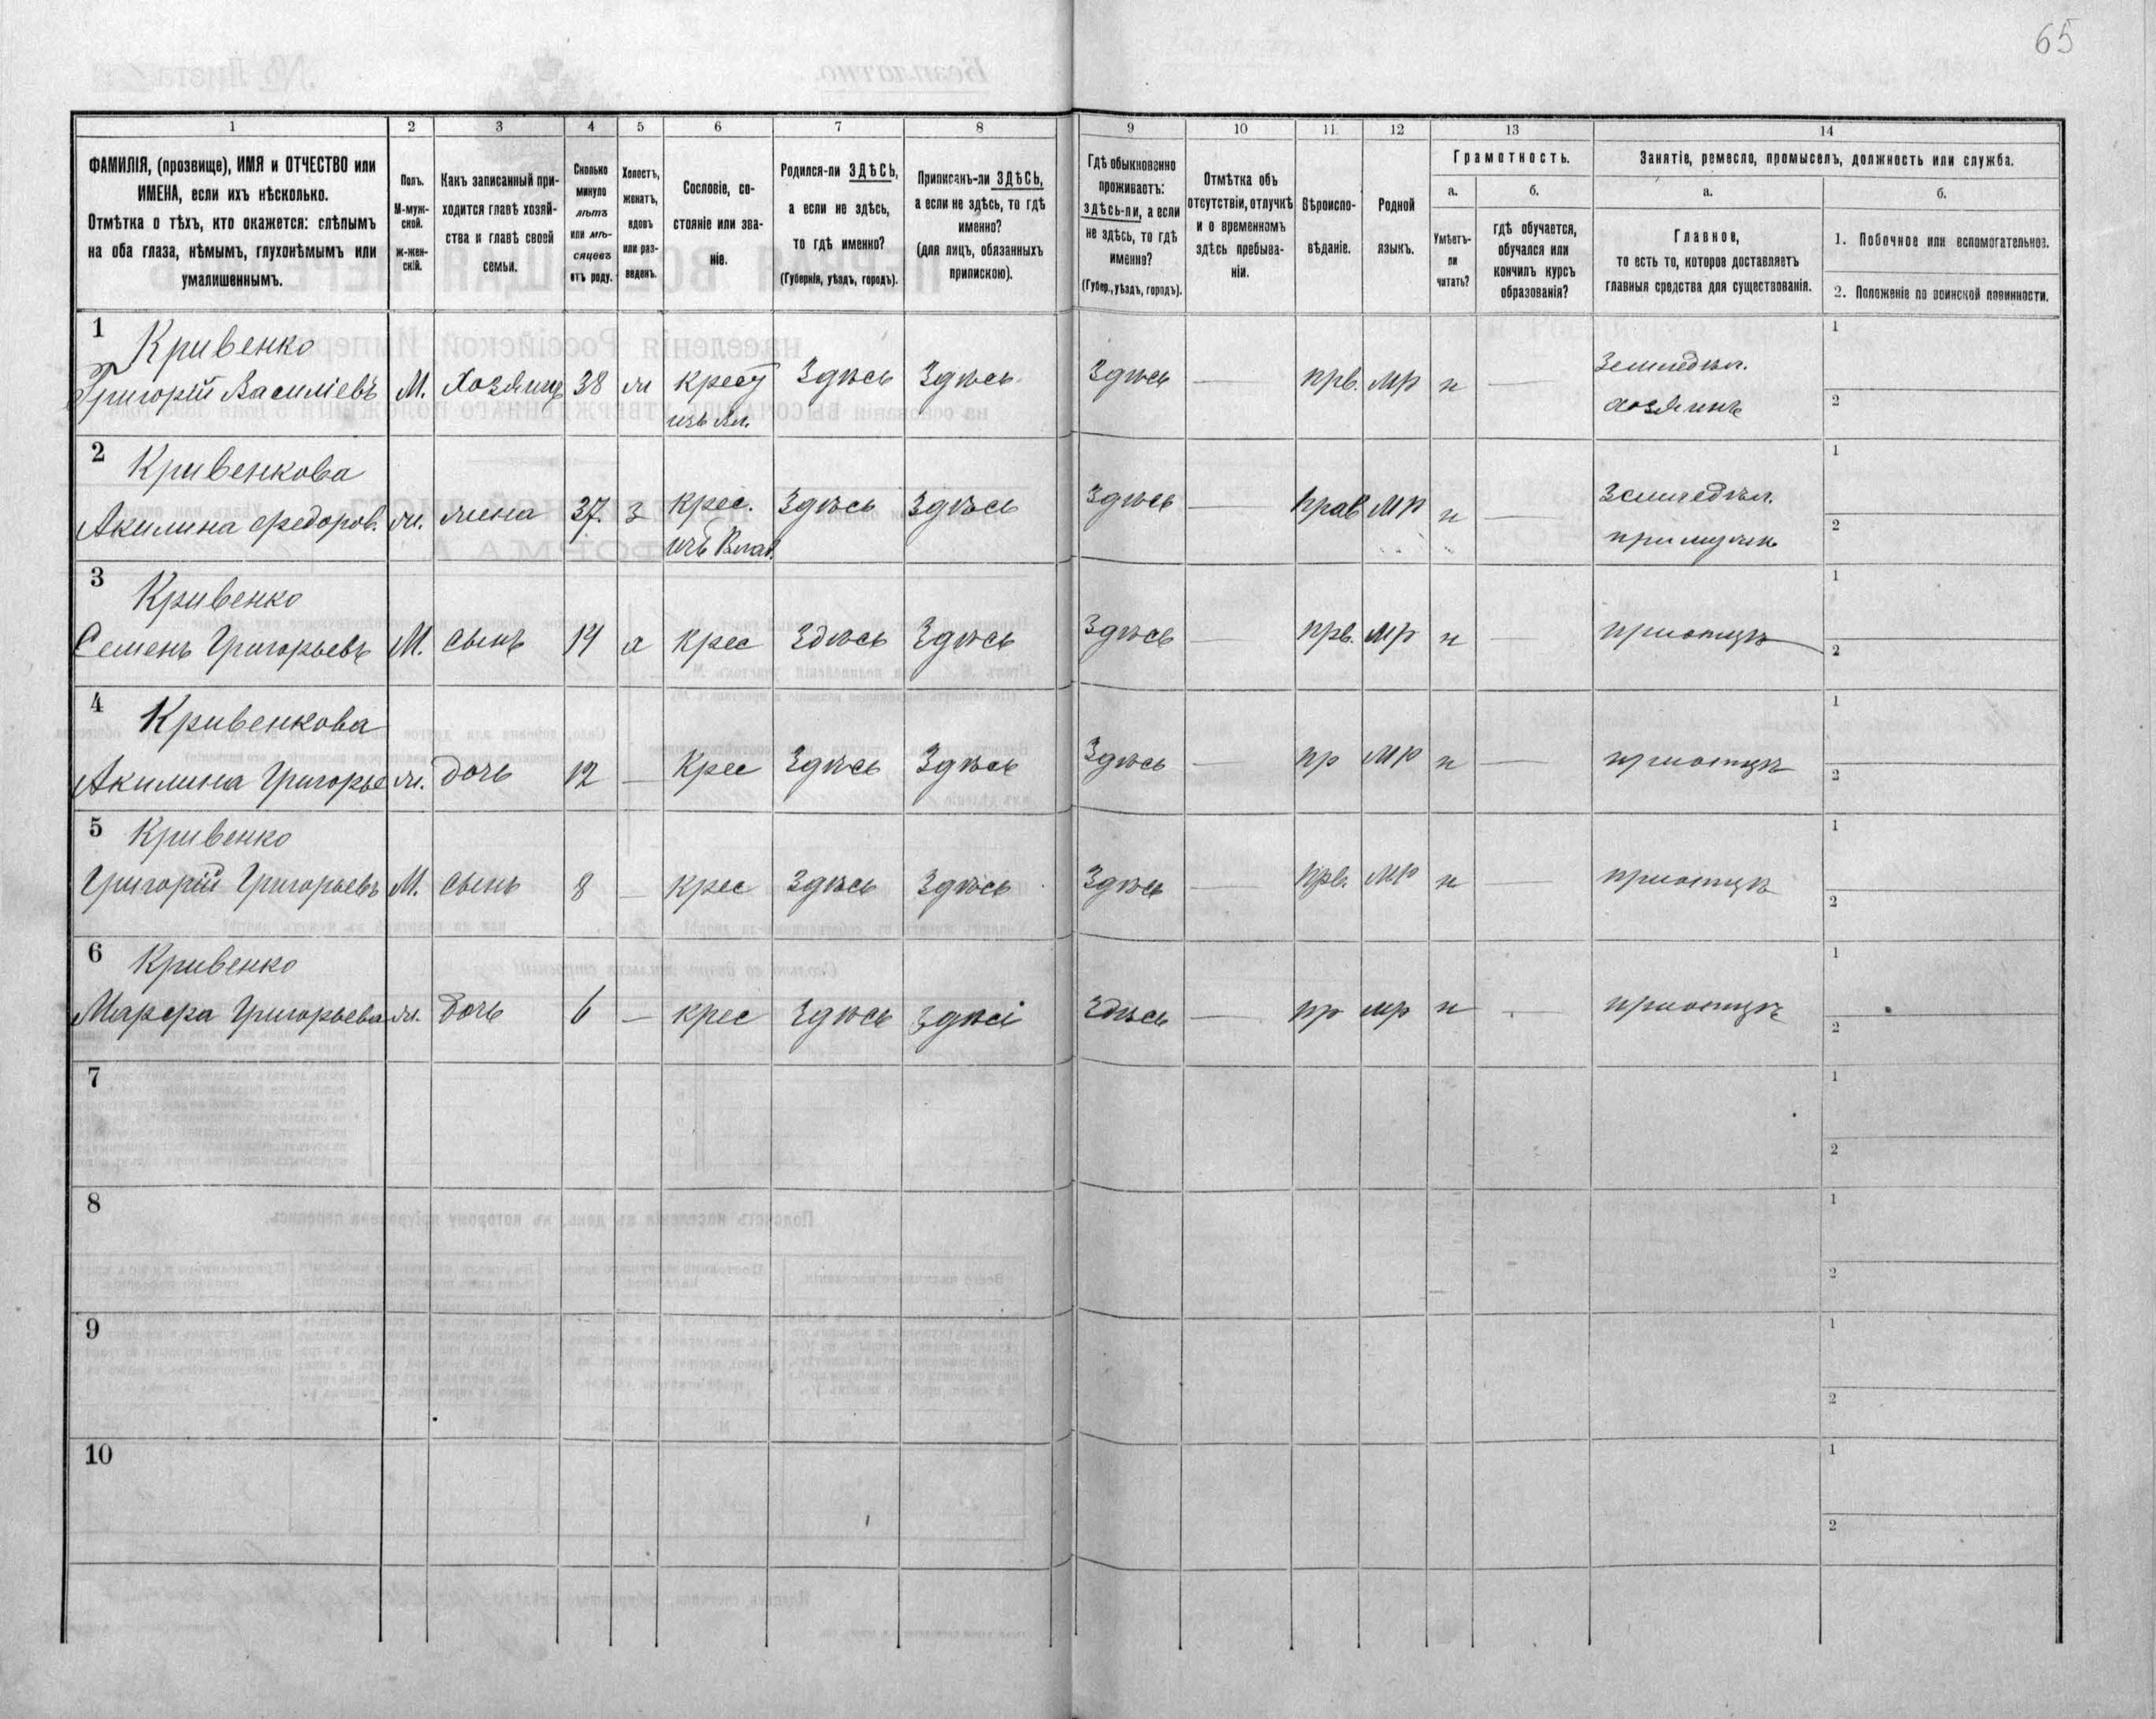 65
1 2 3 4 5 6 7 8 9 10 11. 12 13 14
ФАМИЛІЯ, (прозвище), ИМЯ и ОТЧЕСТВО или
ИМЕНА, если ихъ нѣсколько.
Отмѣтка о тѣхъ, кто окажется: слѣпымъ
на оба глаза, нѣмымъ, глухонѣмымъ или
умалишеннымъ.
Полъ.
М-муж-
ской.
ж-жен-
скій.
Какъ записанный при-
ходится главѣ хозяй-
ства и главѣ своей
семьи.
Сколько
минуло
лѣтъ
или мѣ-
сяцевъ
отъ роду.
Холостъ,
женатъ,
вдовъ
или раз-
веденъ.
Сословіе, со-
стояніе или зва-
ніе.
Родился-ли ЗДѢСЬ,
а если не здѣсь,
то гдѣ именно?
(Губернія, уѣздъ, городъ).
Приписанъ-ли ЗДѢСЬ,
а если не здѣсь, то гдѣ
именно?
(для лицъ, обязанныхъ
припискою).
Гдѣ обыкновенно
проживаетъ:
здѣсь-ли, а если
не здѣсь, то гдѣ
именно?
(Губер., уѣздъ, городъ).
Отмѣтка объ
отсутствіи, отлучкѣ
и о временномъ
здѣсь пребыва-
ніи.
Вѣроиспо-
вѣданіе.
Родной
языкъ.
Грамотность.
а.
Умѣетъ-
ли
читать?
б.
гдѣ обучается,
обучался или
кончилъ курсъ
образованія?
Занятіе, ремесло, промыселъ, должность или служба.
а.
Главное,
то есть то, которое доставляетъ
главныя средства для существованія.
б.
1. Побочное или вспомогательное.
2. Положеніе по воинской повинности.
1 Кривенко
Григорій Василіевъ М. Хозяинъ 38 Здѣсь Здѣсь Здѣсь — прв. мр н — Земледѣл.
хозяинъ
1
2
2 Кривенкова
Акилина Федоров. ж. жена 37. з крес. Здѣсь Здѣсь Здѣсь — прав мр н — Земледѣл.
при мужѣ
1
2
3 Кривенко
Семенъ Григорьевъ М. сынъ 14 х крес Здѣсь Здѣсь Здѣсь — прв. мр н — при отцѣ
1
2
4 Кривенкова
Акилина Григорье ж. дочь 12 — крес Здѣсь Здѣсь Здѣсь — пр мр н — при отцѣ
1
2
5 Кривенко
Григорій Григорьевъ М. сынъ 8 — крес Здѣсь Здѣсь Здѣсь — прв. мр н — при отцѣ
1
2
6 Кривенко
Марфа Григорьева ж. дочь 6 — крес Здѣсь Здѣсь Здѣсь — пр мр н — при отцѣ
1
2
7
1
2
8
1
2
9
1
2
10
1
2